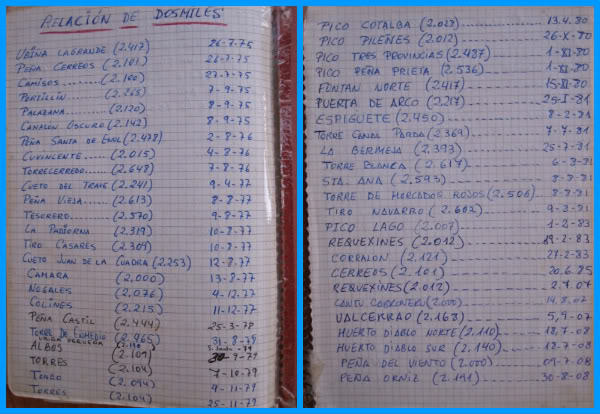 RELACIÓN DE DOSMILES
UBIÑA LAGRANDE (2.417) 26-7-75
PEÑA CERREOS (2.101) 26-7-75
CAMISOS (2.160) 27-7-75
PORTILLÍN 7-9-75
PALAZANA (2.120) 8-9-75
CANALÓN OSCURO (2.142) 8-9-75
PEÑA SANTA DE ENOL (2.478) 2-8-76
CUVINCENTE (2.015) 4-8-76
TORRECERREDO (2.648) 7-8-76
CUETO DEL TRAVE (2.241) 9-4-77
PEÑA VIEJA (2.613) 8-8-77
TESORERO (2.570) 9-8-77
LA PADIORNA (2.319) 10-8-77
TIRO CASARES (2.304) 10-8-77
CUETO JUAN DE LA CUADRA (2.253) 12-8-77
CAMARA (2.000) 13-8-77
NOGALES (2.076) 4-12-77
COLINES (2.215) 11-12-77
PEÑA CASTIL (2.444) 25-3-78
TORRE DE ENMEDIO (2.465) 31-8-79
ALBOS (2.109) 30-9-79
TORRES (2.104) 7-10-79
TONGO (2.094) 9-11-79
TORRES (2.104) 25-11-79
PICO COTALBA (2.023) 13.4.80
PICO PILEÑES (2.012) 26-X-80
PICO TRES PROVINCIAS (2.437) 1-XI-80
PICO PEÑA PRIETA (2.536) 1-XI-80
FONTAN NORTE (2.417) 15-XI-80
PUERTA DE ARCO (2.217) 25-I-81
ESPIGUETE (2.450) 8-2-81
TORRE CANAL PARDA (2.369) 7-7-81
LA BERMEJA (2.393) 25-7-81
TORRE BLANCA (2.617) 6-8-81
STA. ANA (2.593) 8-8-81
TORRE DE HORCADOS ROJOS (2.506) 8-8-81
TIRO NAVARRO (2.602) 9-3-81
PICO LAGO (2.007) 1-2-83
REQUEXINES (2.012) 19-2-83
CORRALON (2.121) 27-2-83
CERREOS (2.101) 20.6.85
REQUEXINES (2.012) 2.7.07
14.8.07
VALCERRAO (2.163) 5,9-07
HUERTO DIABLO NORTE (2.110) 12-7-08
HUERTO DIABLO SUR (2.140) 12-7-08
PEÑA DEL VIENTO (2.000) 09-7-08
PEÑA ORNIZ (2.191) 30-8-08